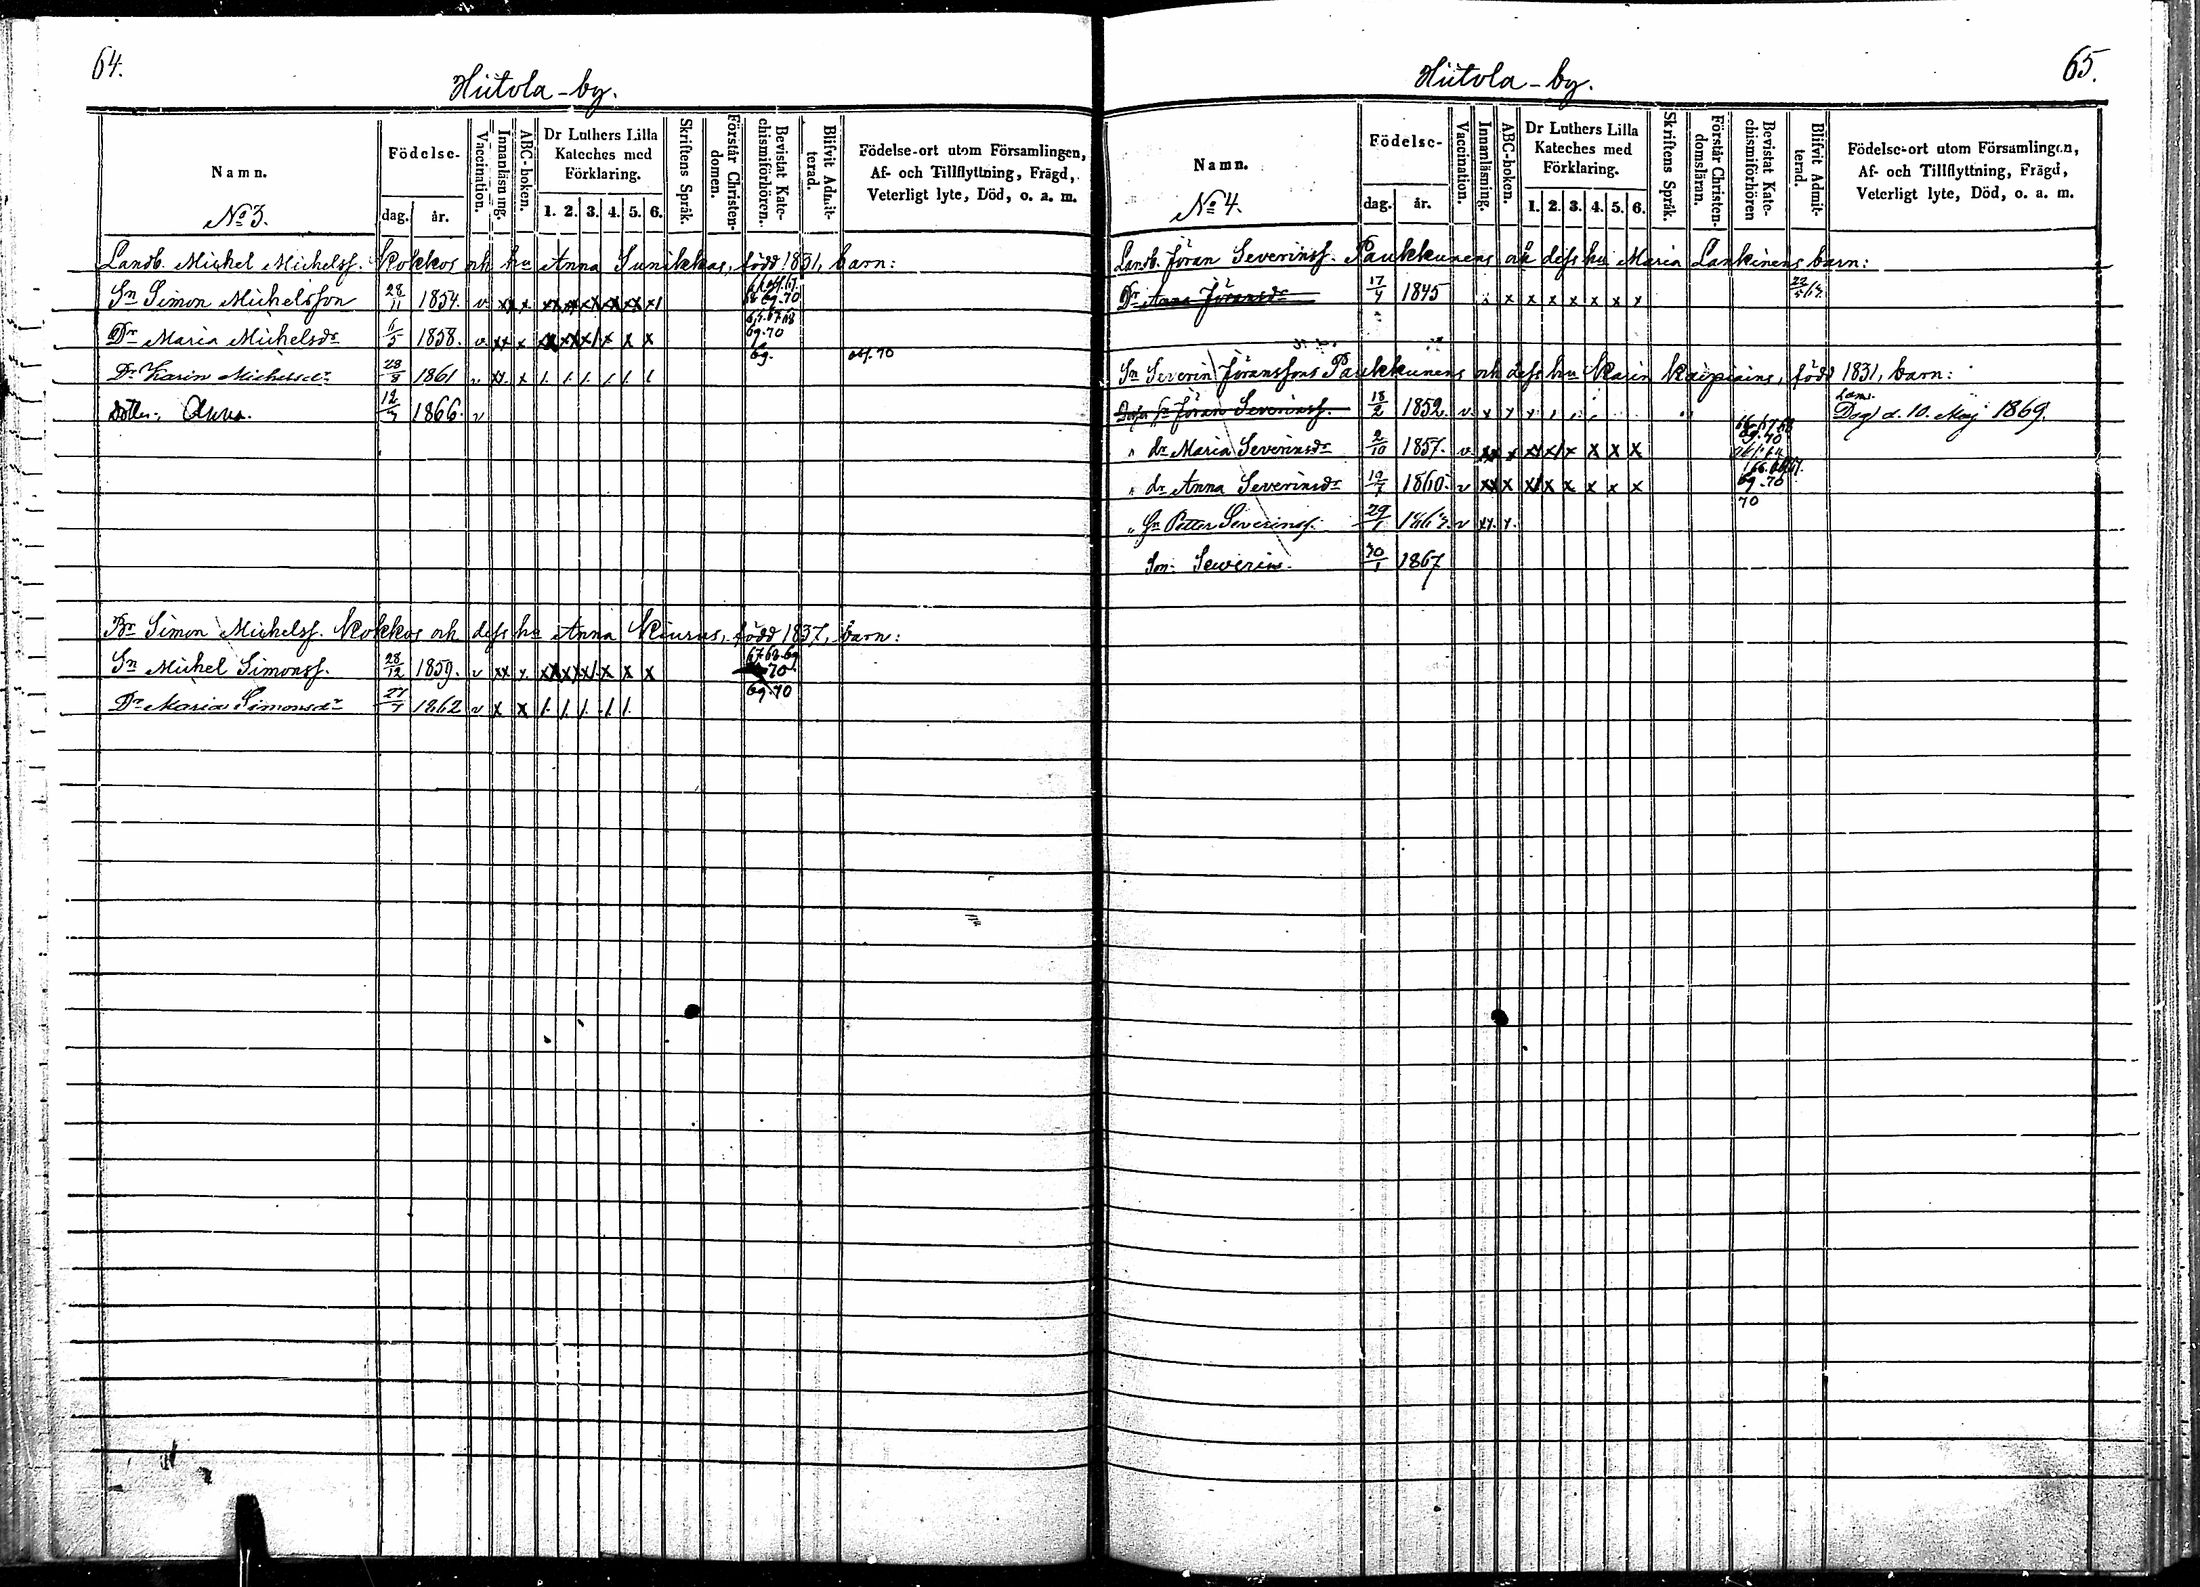 64.
Hiitola-by.
Namn.
No 3.
Födelse-
dag.
år.
Vaccination.
Innanläsning.
ABC-boken.
Dr Luthers Lilla
Kateches med
Förklaring.
1. 2. 3. 4. 5. 6.
Skriftens Språk.
Förstår Christen-
domen.
Bevistat Kate-
chismiförhören.
Blifvit Admit-
terad.
Födelse-ort utom Församlingen,
Af- och Tillflyttning, Frägd,
Veterligt lyte, Död, o. a. m.
Landb. Michel Michelss. Kokkos och hu Anna Sunikkas, född 1831, barn:
Sn Simon Michelsson 28/11 1854. v xx x
Dr Maria Michelsdr 1858. v xx x
69.70
Dr Karin Michelsdr 28/8 1861 v xx. x 1. 1. 1. 1. 1. 1
69.
Dotter, Anna. 1866. v
Br Simon Michelss. Kokkos och dess hu Anna Kiurus, född 1837, barn:
Sn Michel Simonss. 28/12 1859. v xx x.
67.68.69
70
Dr Maria Simonsdr 1862 v x x 1. 1. 1. 1. 1.
69.70
65.
Hiitola-by.
Namn.
No 4.
Födelse-
dag.
år.
Vaccination.
Innanläsning.
ABC-boken.
Dr Luthers Lilla
Kateches med
Förklaring.
1. 2. 3. 4. 5. 6.
Skriftens Språk.
Förstår Christen-
domsläran.
Bevistat Kate-
chismiförhören
Blifvit Admit-
terad.
Födelse-ort utom Församlingen,
Af- och Tillflyttning, Frägd,
Veterligt lyte, Död, o. a. m.
Landb. Jöran Severinss. Paukkunens och dess hu Maria Lankinens barn:
Dr Anna Jöransdr 17/4 1845 x x x x x x x
Sn Severin Jöranssons Paukkunens och dess hu Karin Kaipiains, född 1831, barn:
sn Jöran Severinss. 18/2 1852. v. x
d. 10. Maj 1869.
" dr Maria Severinsdr 2/10 1857. v. xx x
69.70
" dr Anna Severinsdr 19/7 1860. v xx x
69.70
" Sn Petter Severinss. 29/1 v xx. x.
70
Son: Severin. 30/1 1867